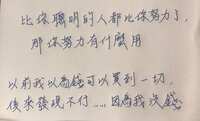 比你聰明的人都比你努力了,
那你努力有什麼用
以前我以為錢可以買到一切,
後來發現不行....因為我沒錢